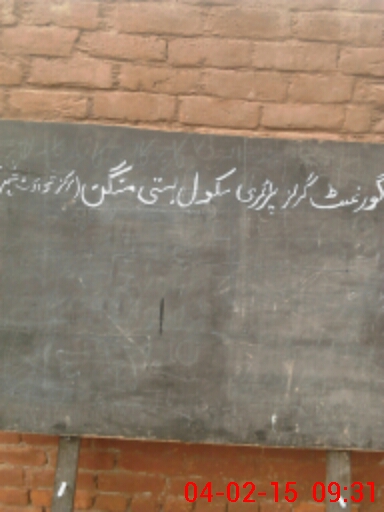 گورنمنٹ گرلز پرائمری سکول بستی منگن (مرکز
04-02-15 09:31